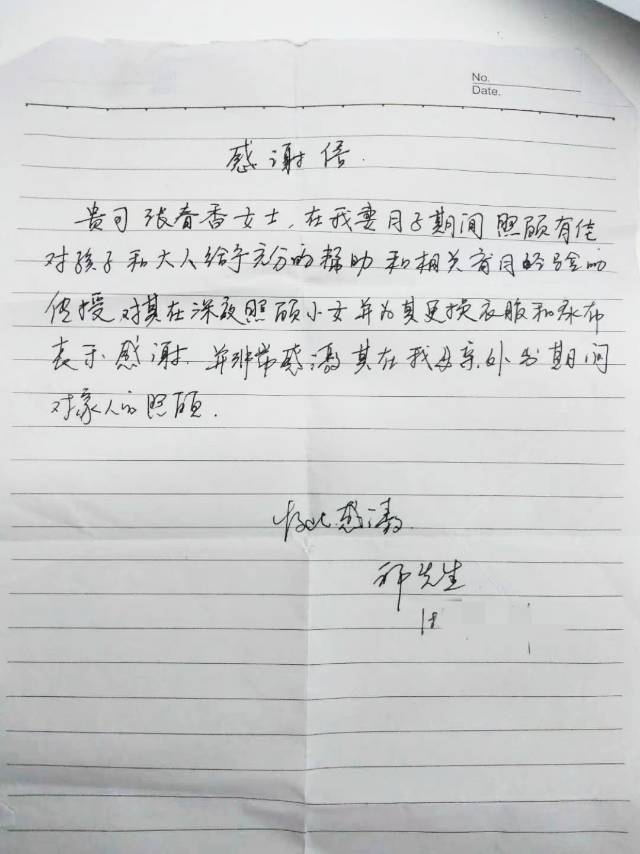 No.
Date.
感谢信.
贵司张春香女士,在我妻月子期间照顾有佳
对孩子和大人给予充分的帮助和相关育月的经验的
传授对其在深夜照顾小女并为其更换衣服和尿布
表示感谢.并非常感激其在我母亲外出期间
对家人的照顾.
特此感激.
祁先生
18